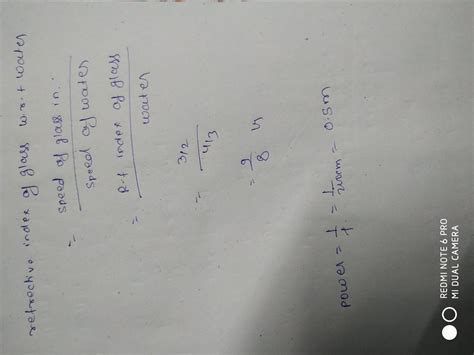 refractive index of glass w.r.t water
= speed of glass in
speed of water
= R.f index of glass
water
= 3/2
4/3
= 9
8
power = 1/f = 1/200cm = 0.5m
REDMI NOTE 6 PRO
MI DUAL CAMERA